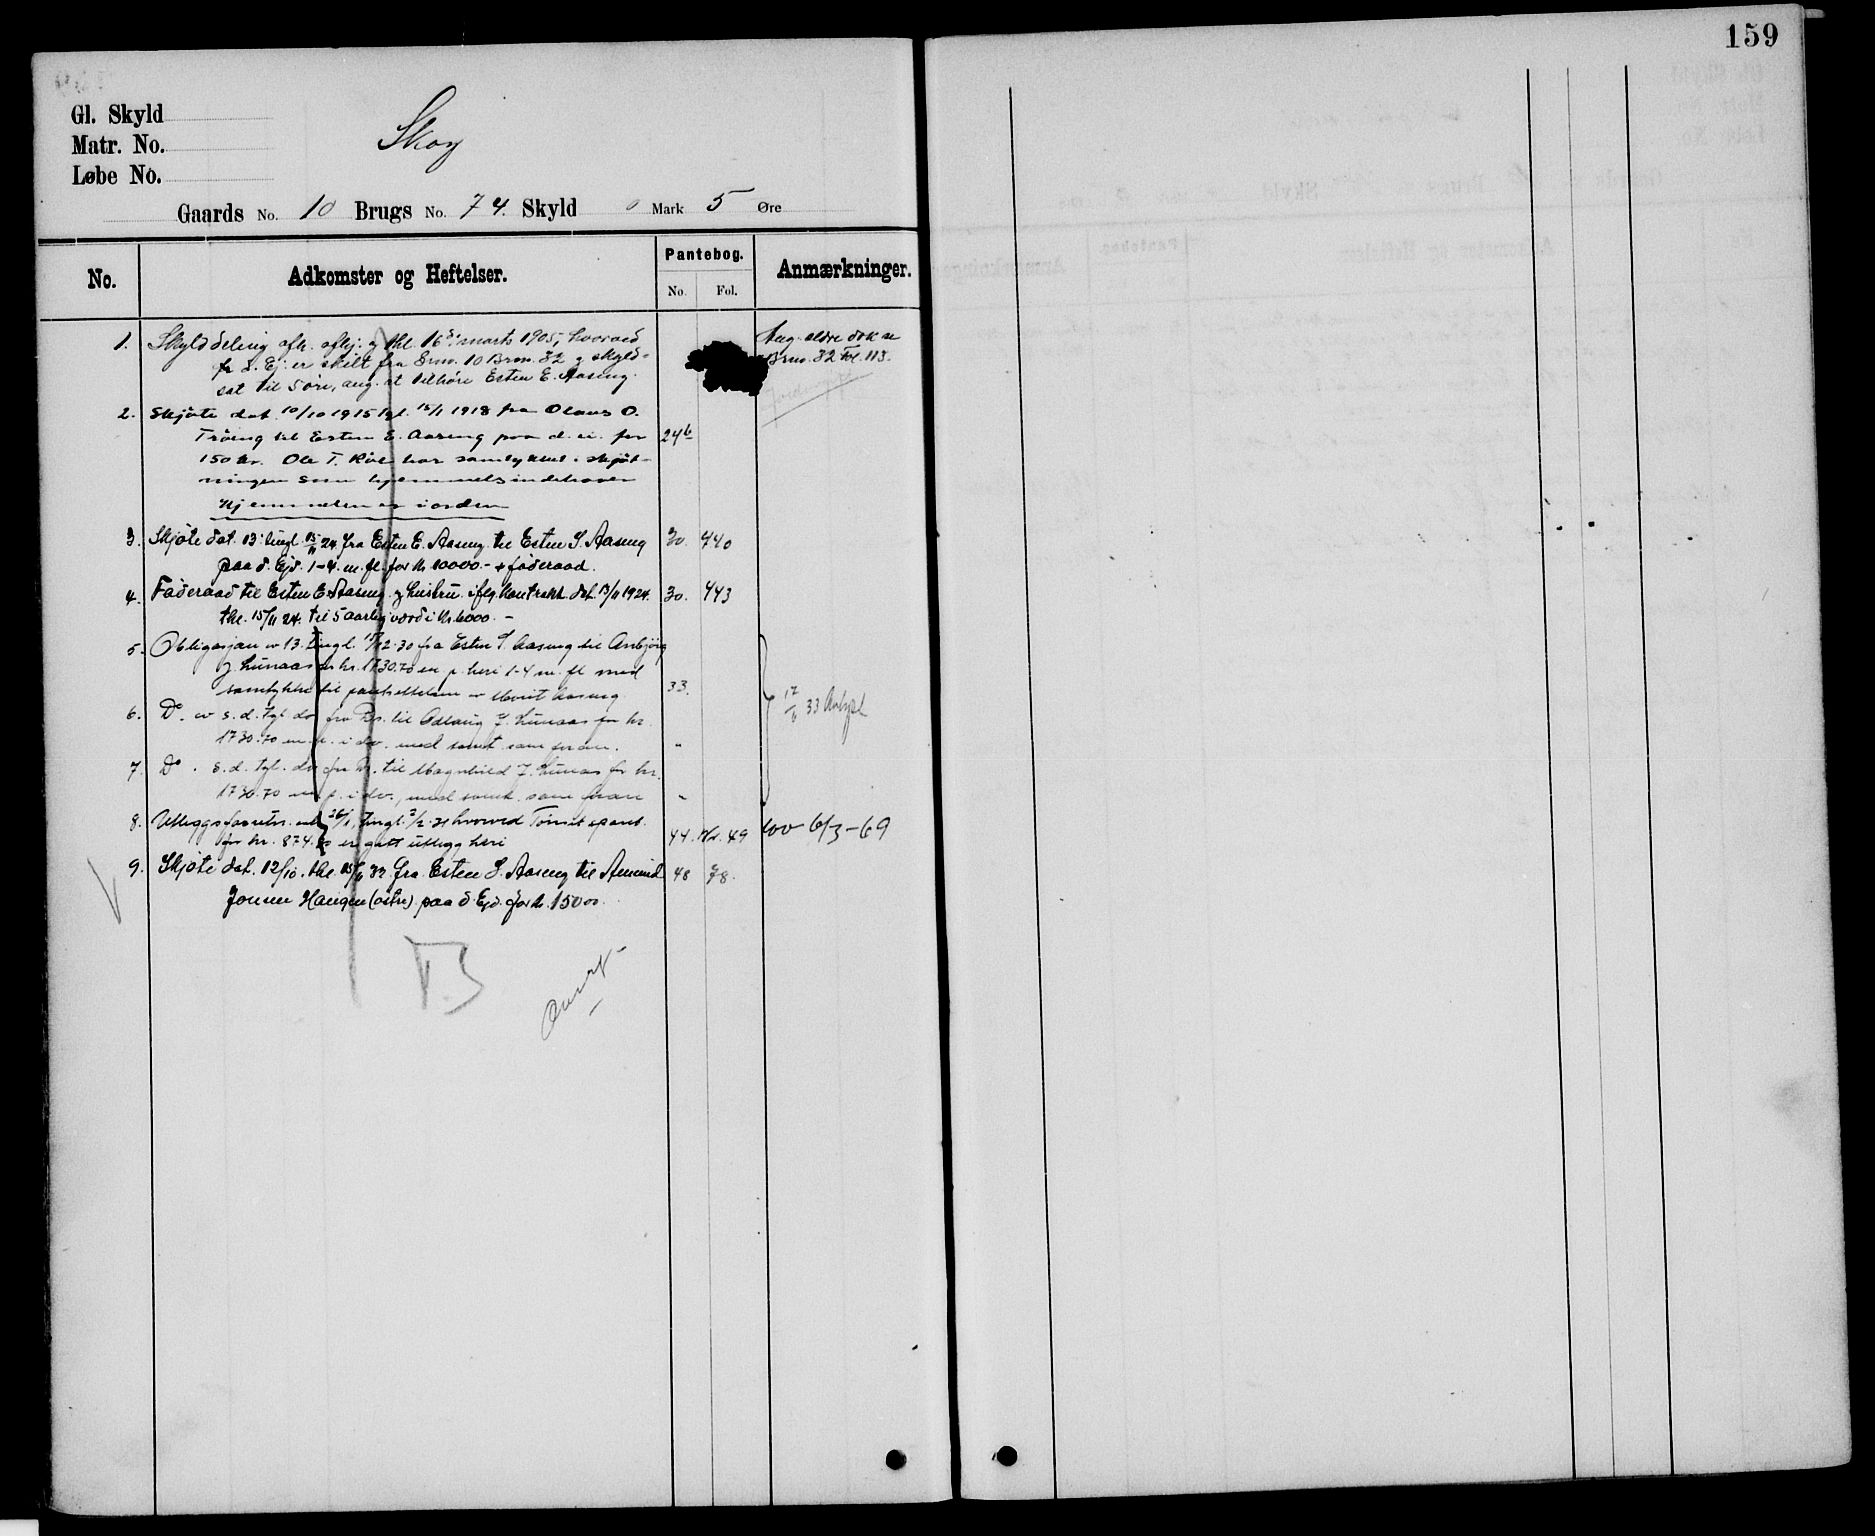 159
Gl. Skyld
Matr. No.
Løbe No.
Skog
Gaards No. 10 Brugs No. 74. Skyld 0 Mark 5 Øre
No. Adkomster og Heftelser. Pantebog. Anmærkninger.
No. Fol.
1. Skylddeling afh. afhj. og thl. 16de marts 1905, hvorved
d. Ej. er skilt fra Grno. 10 Brno. 32 og skyld-
sat til 5 øre, ang. at tilhøre Esten E. Aaseng.
Ang. ældre dok se
Brno. 32 Fol. 113.
2. Skjøte dat. 10/10 1915 tgl. 15/1 1918 fra Olaus O.
Trøeng til Esten E. Aaseng paa d. ei. for 24b
150 kr. Ole T. har samtykket i skjøt-
ningen som hjemmelsindehaver
Hjemmelen er i orden
3. Skjøte dat. 13. tingl. 15/11 24 fra Esten E. Aaseng til Esten S. Aaseng 30. 440
paa d. Ejd. 1-4 m. fl. for kr 10000.- + føderaad.
4. Føderaad til Esten E. Aaseng og hustru iflg. kontrakt dat. 13/11 1924. 30. 443
thl. 15/11 24. til 5 aarlig værdi kr. 6000.-
5. Obligasjon av 13. tingl. 15/12-30 fra Esten S. Aaseng til Anbjørg
J. Lunaas for kr. 1730.70 m p. heri 1-4 m. fl. med
samtykke til pantsettelsen av Marit Aaseng 33.
6. Do. av s.d. tgl do fra Ds. til Aslaug J. Lunaas for kr.
1730.70 m p. i do. med samt. som foran. "
17/6 33 Avlyst
7. Do. s.d. tgl. do fra Ds. til Magnhild J. Lunaas for kr.
1730.70 m p. i do., med samt. som foran "
8. Utleggsforretn. 26/1, tingl. 3/2-31 hvorved Tønset spareb.
for kr. 874. er gitt utlegg heri 44. Nr. 49
6/3-69
9. Skjøte dat. 12/10. thl. 15/11 33 fra Esten S. Aaseng til Amund 48 78.
Jonsen Haugen (østre) paa d. Ejd. for kr. 1500.